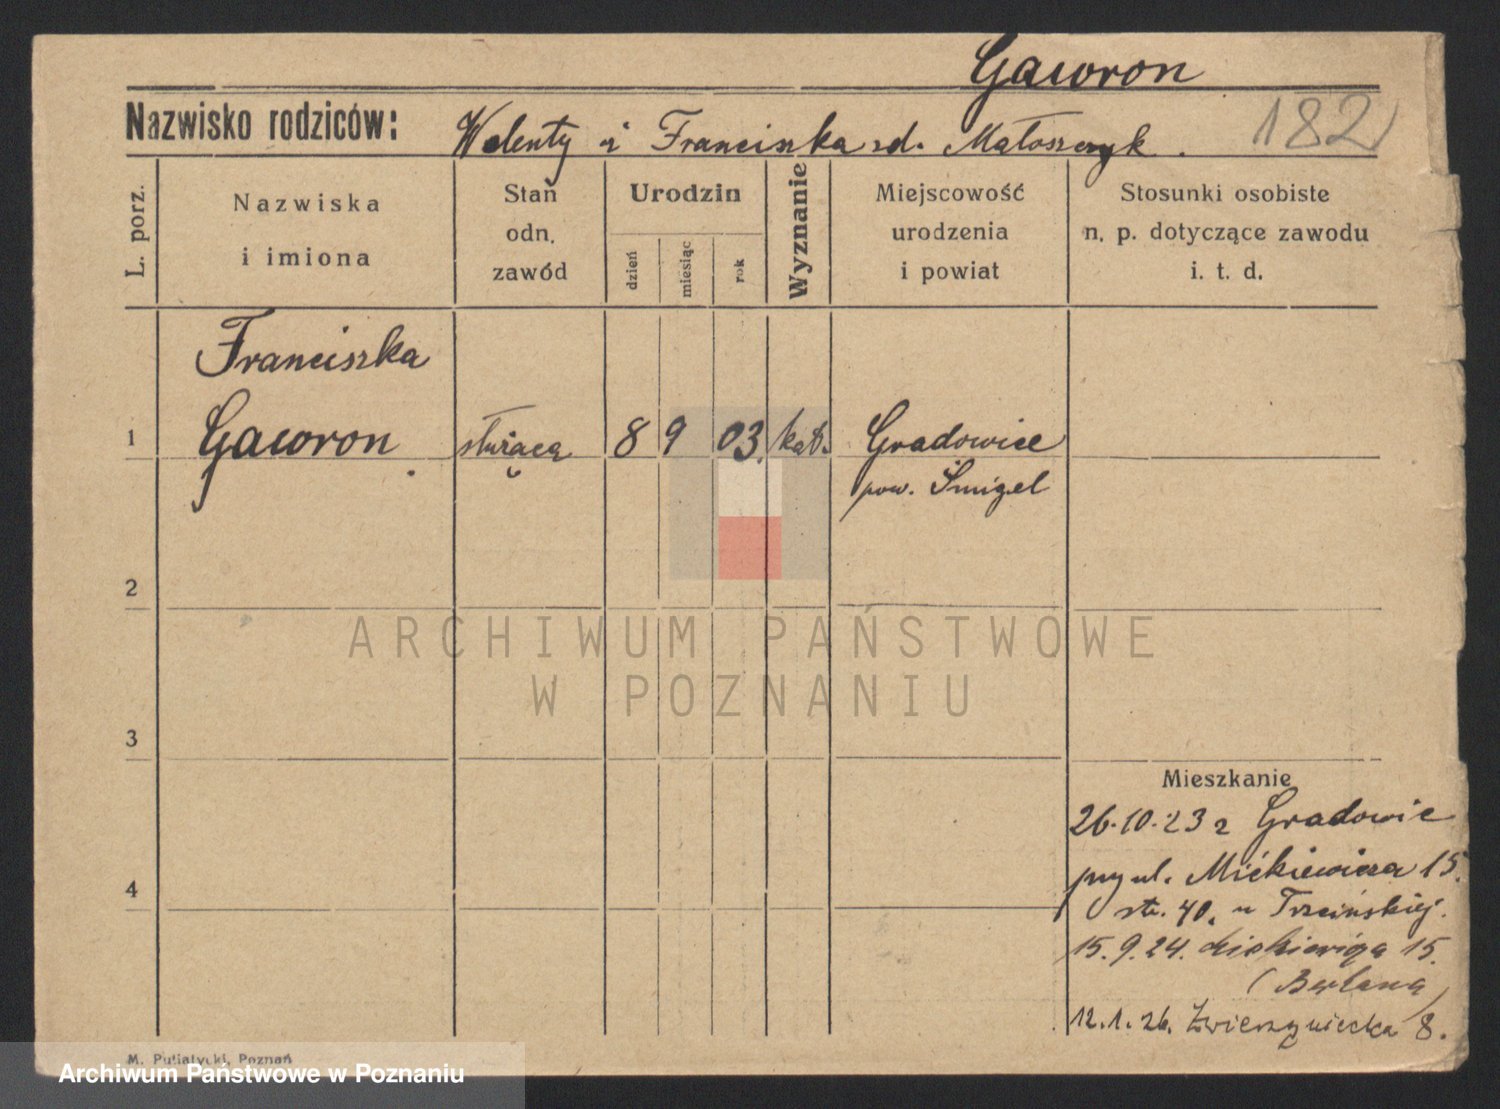 Gawron
Nazwisko rodziców: Walenty i Franciszka zd. Małoszczyk.
182
L. porz.
Nazwiska
i imiona
Stan
odn.
zawód
Urodzin
dzień
miesiąc
rok
Wyznanie
Miejscowość
urodzenia
i powiat
Stosunki osobiste
n. p. dotyczące zawodu
i. t. d.
Franciszka
1 Gawron służąca 8 9 03. kat. Gradowice
pow. Śmigel
2
ARCHIWUM PAŃSTWOWE
W POZNANIU
3
Mieszkanie
26.10.23 z Gradowic
przy ul. Mickiewicza 15.
str. 40. u Trzcińskiej.
4
15.9.24. 15.
12.1.26. Zwierzyniecka 8.
M. Putiatycki, Poznań
Archiwum Państwowe w Poznaniu